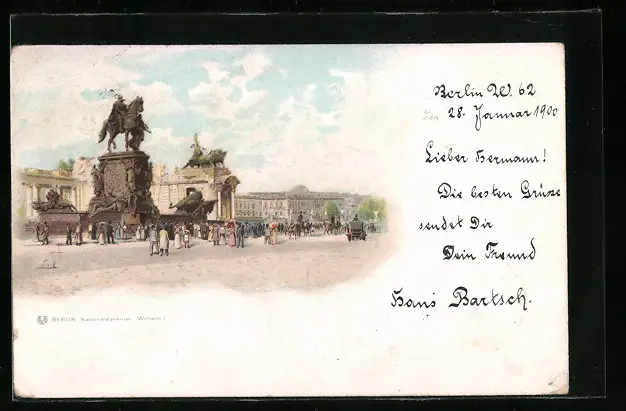 Berlin W. 62
den 28. Januar 1900
Lieber Hermann!
Die besten Grüsse
sendet Dir
Dein Freund
Hans Bartsch.
BERLIN Nationaldenkmal Wilhelm I